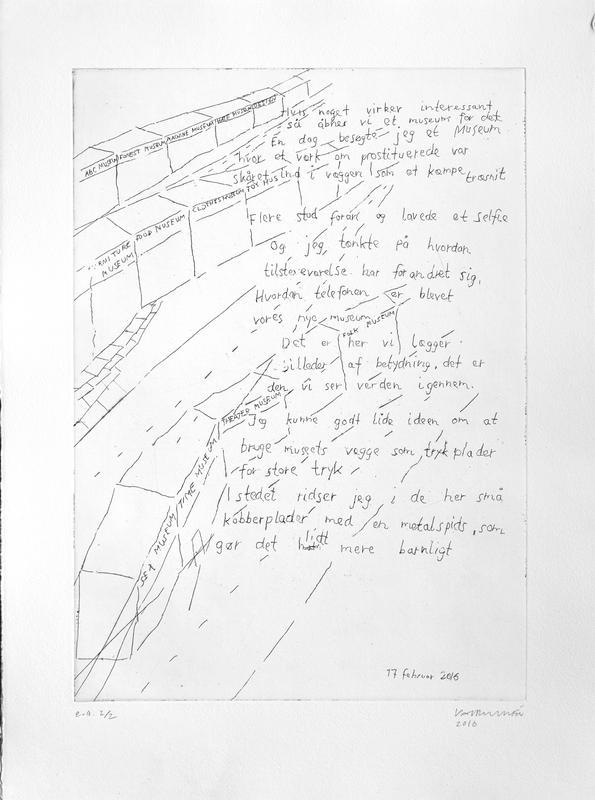 ABC MUSEUM
FOREST MUSEUM
MACHINE MUSEUM
FOOD MUSEUM
CLOTHES MUSEUM
TOY MUSEUM
MUSEUM
Hvis noget virker interessant
så åbner vi et museum for det
En dag besøgte jeg et Museum
hvor et værk om prostituerede var
skåret ind i væggen som et kæmpe træsnit
Flere stod foran og lavede et selfie
Og jeg tænkte på hvordan
tilstedeværelse har forandret sig,
Hvordan telefonen er blevet
vores nye museum
FOLK MUSEUM
Det er her vi lægger
billeder af betydning, det er
den vi ser verden igennem.
THEATER MUSEUM
Jeg kunne godt lide ideen om at
bruge museets vægge som trykplader
for store tryk
TIME MUSEUM
SEA MUSEUM
I stedet ridser jeg i de her små
kobberplader med en metalspids, som
gør det lidt mere barnligt
17 februar 2016
e.a. 2/2
2016